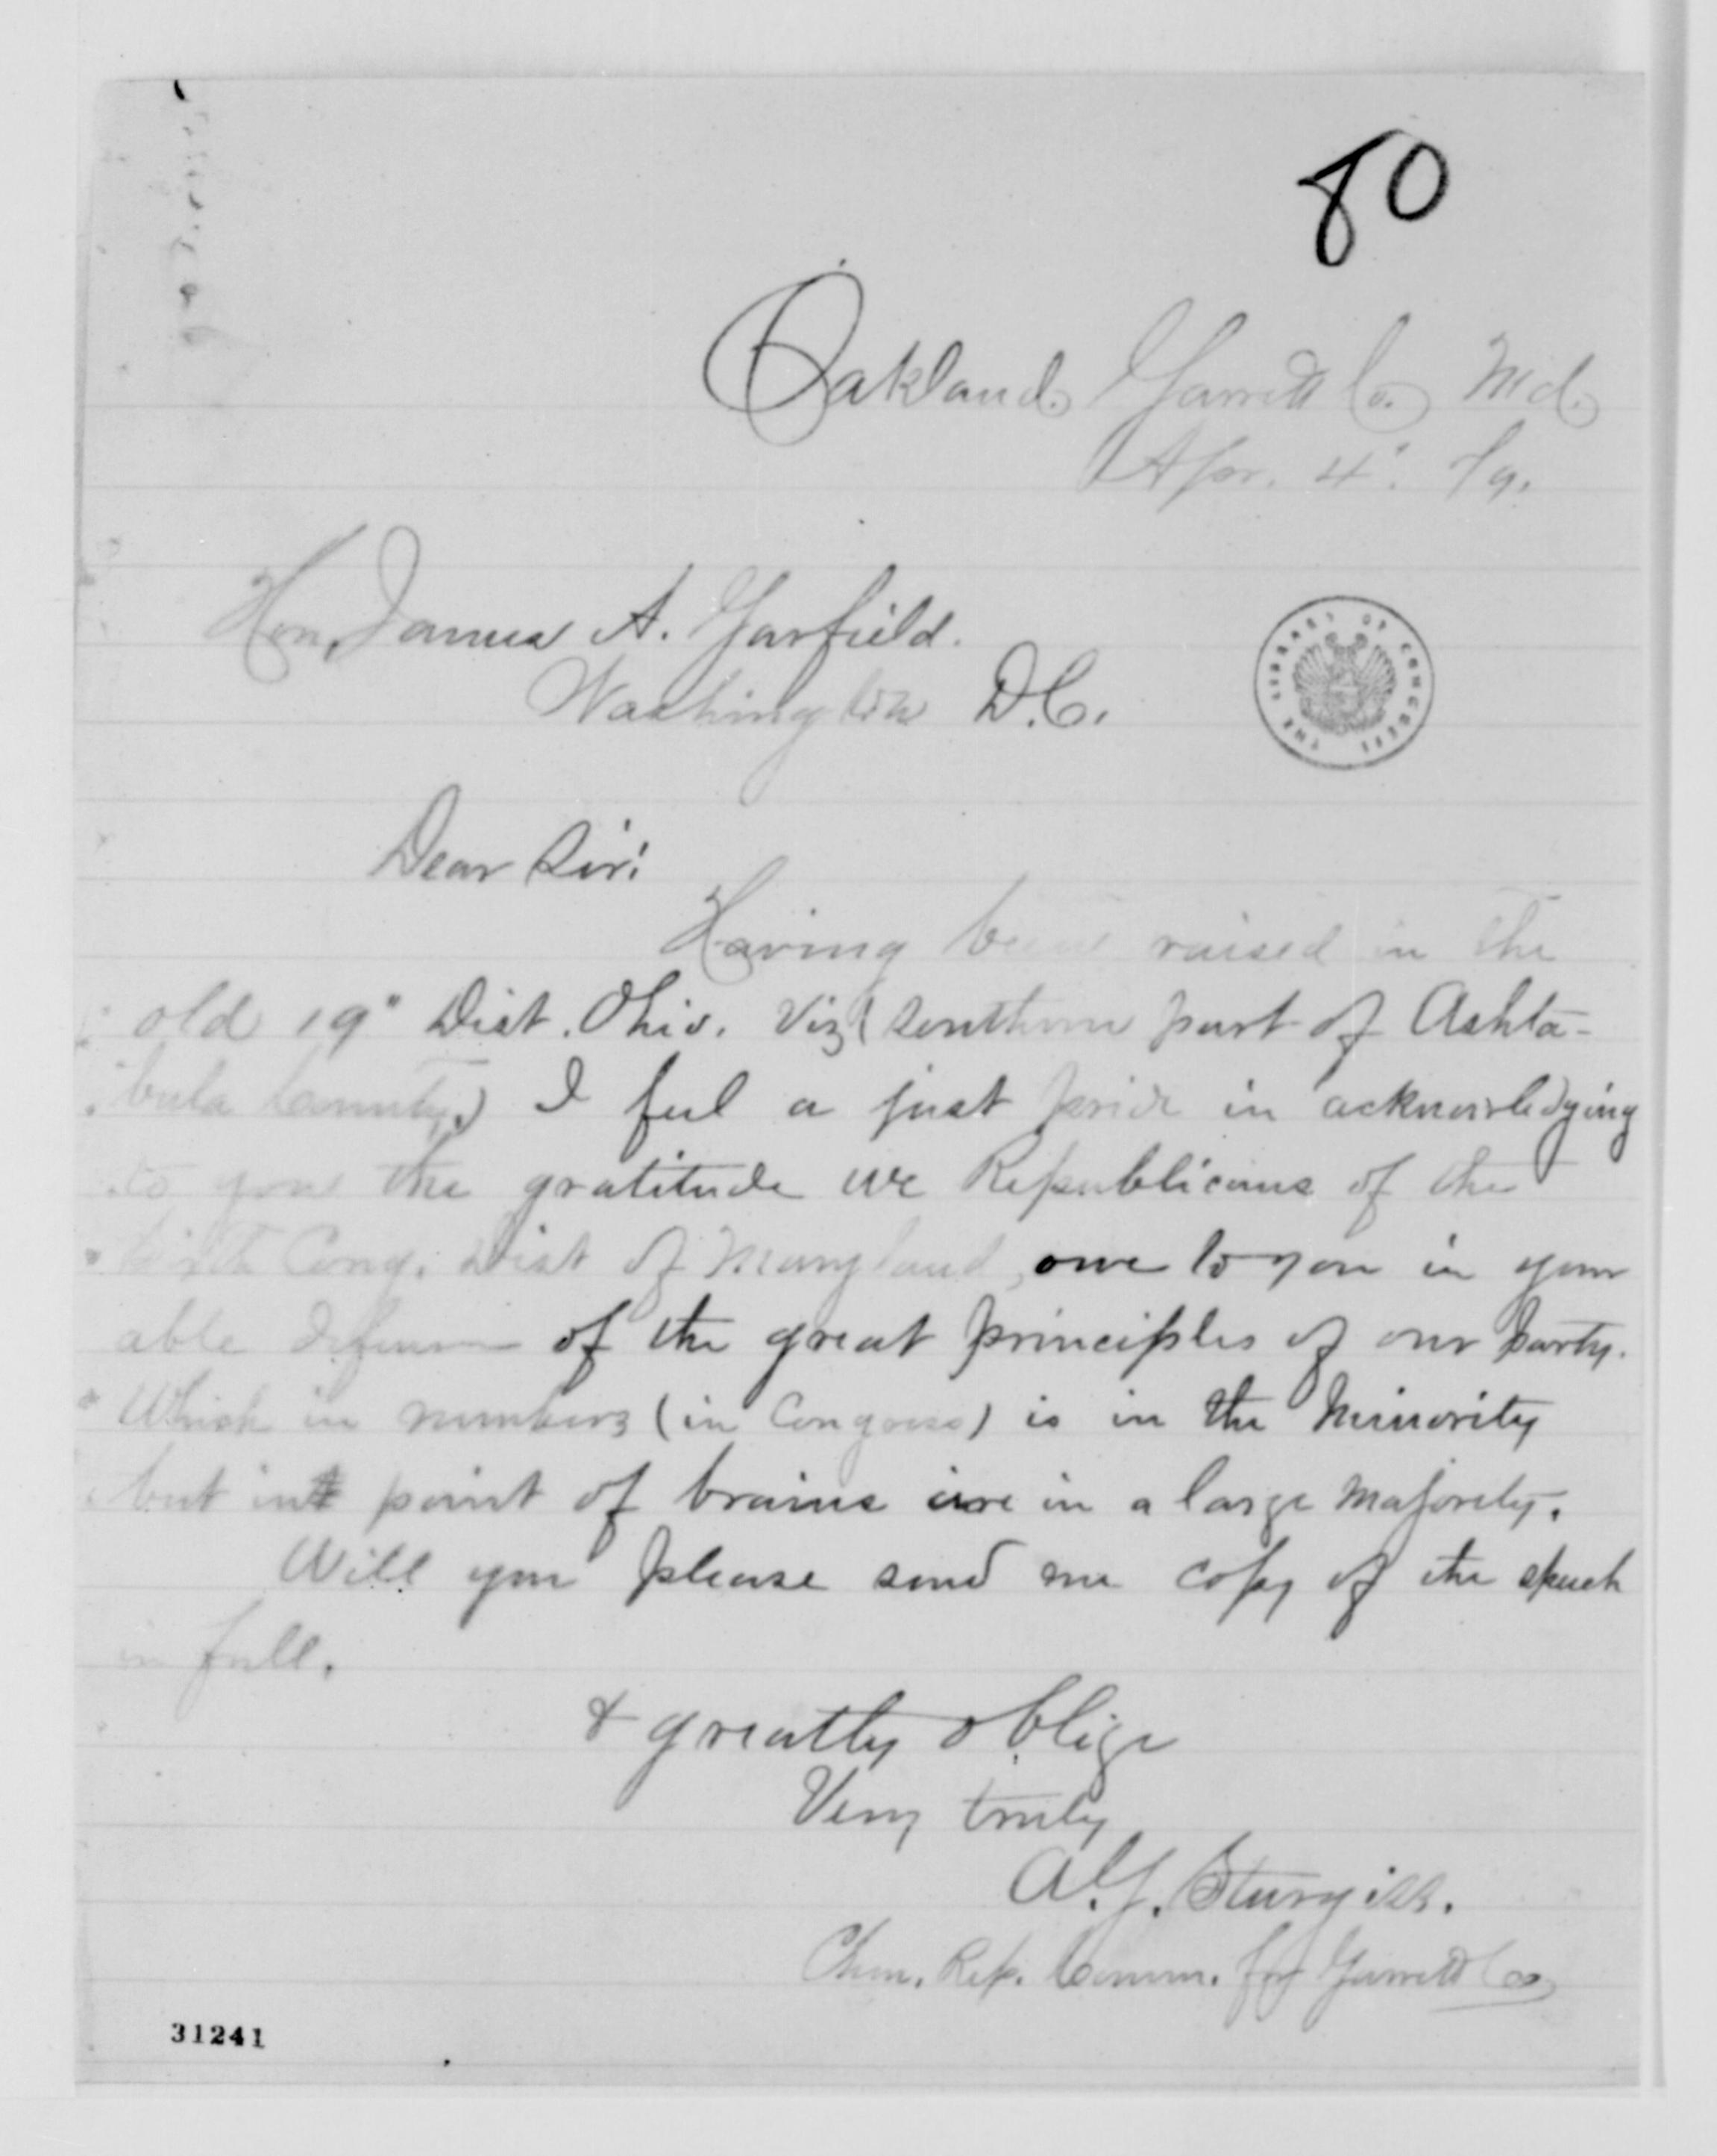 80
Oakland Garrett Co. Md.
Apr. 4". 79.
Hon. James A. Garfield.
Washington D.C.
THE LIBRARY OF CONGRESS
Dear Sir:
Having been raised in the
old 19" Dist. Ohio. Viz (Southern part of Ashta-
bula County.) I feel a just pride in acknowledging
to you the gratitude we Republicans of the
Sixth Cong. Dist of Maryland, owe to you in your
able defense of the great principles of our party.
Which in numbers (in Congress) is in the Minority
but in point of brains are in a large Majority.
Will you please send me copy of the speech
in full.
& greatly oblige
Very truly
A.G. Sturgiss.
Chm. Rep. Comm. for Garrett Co
31241